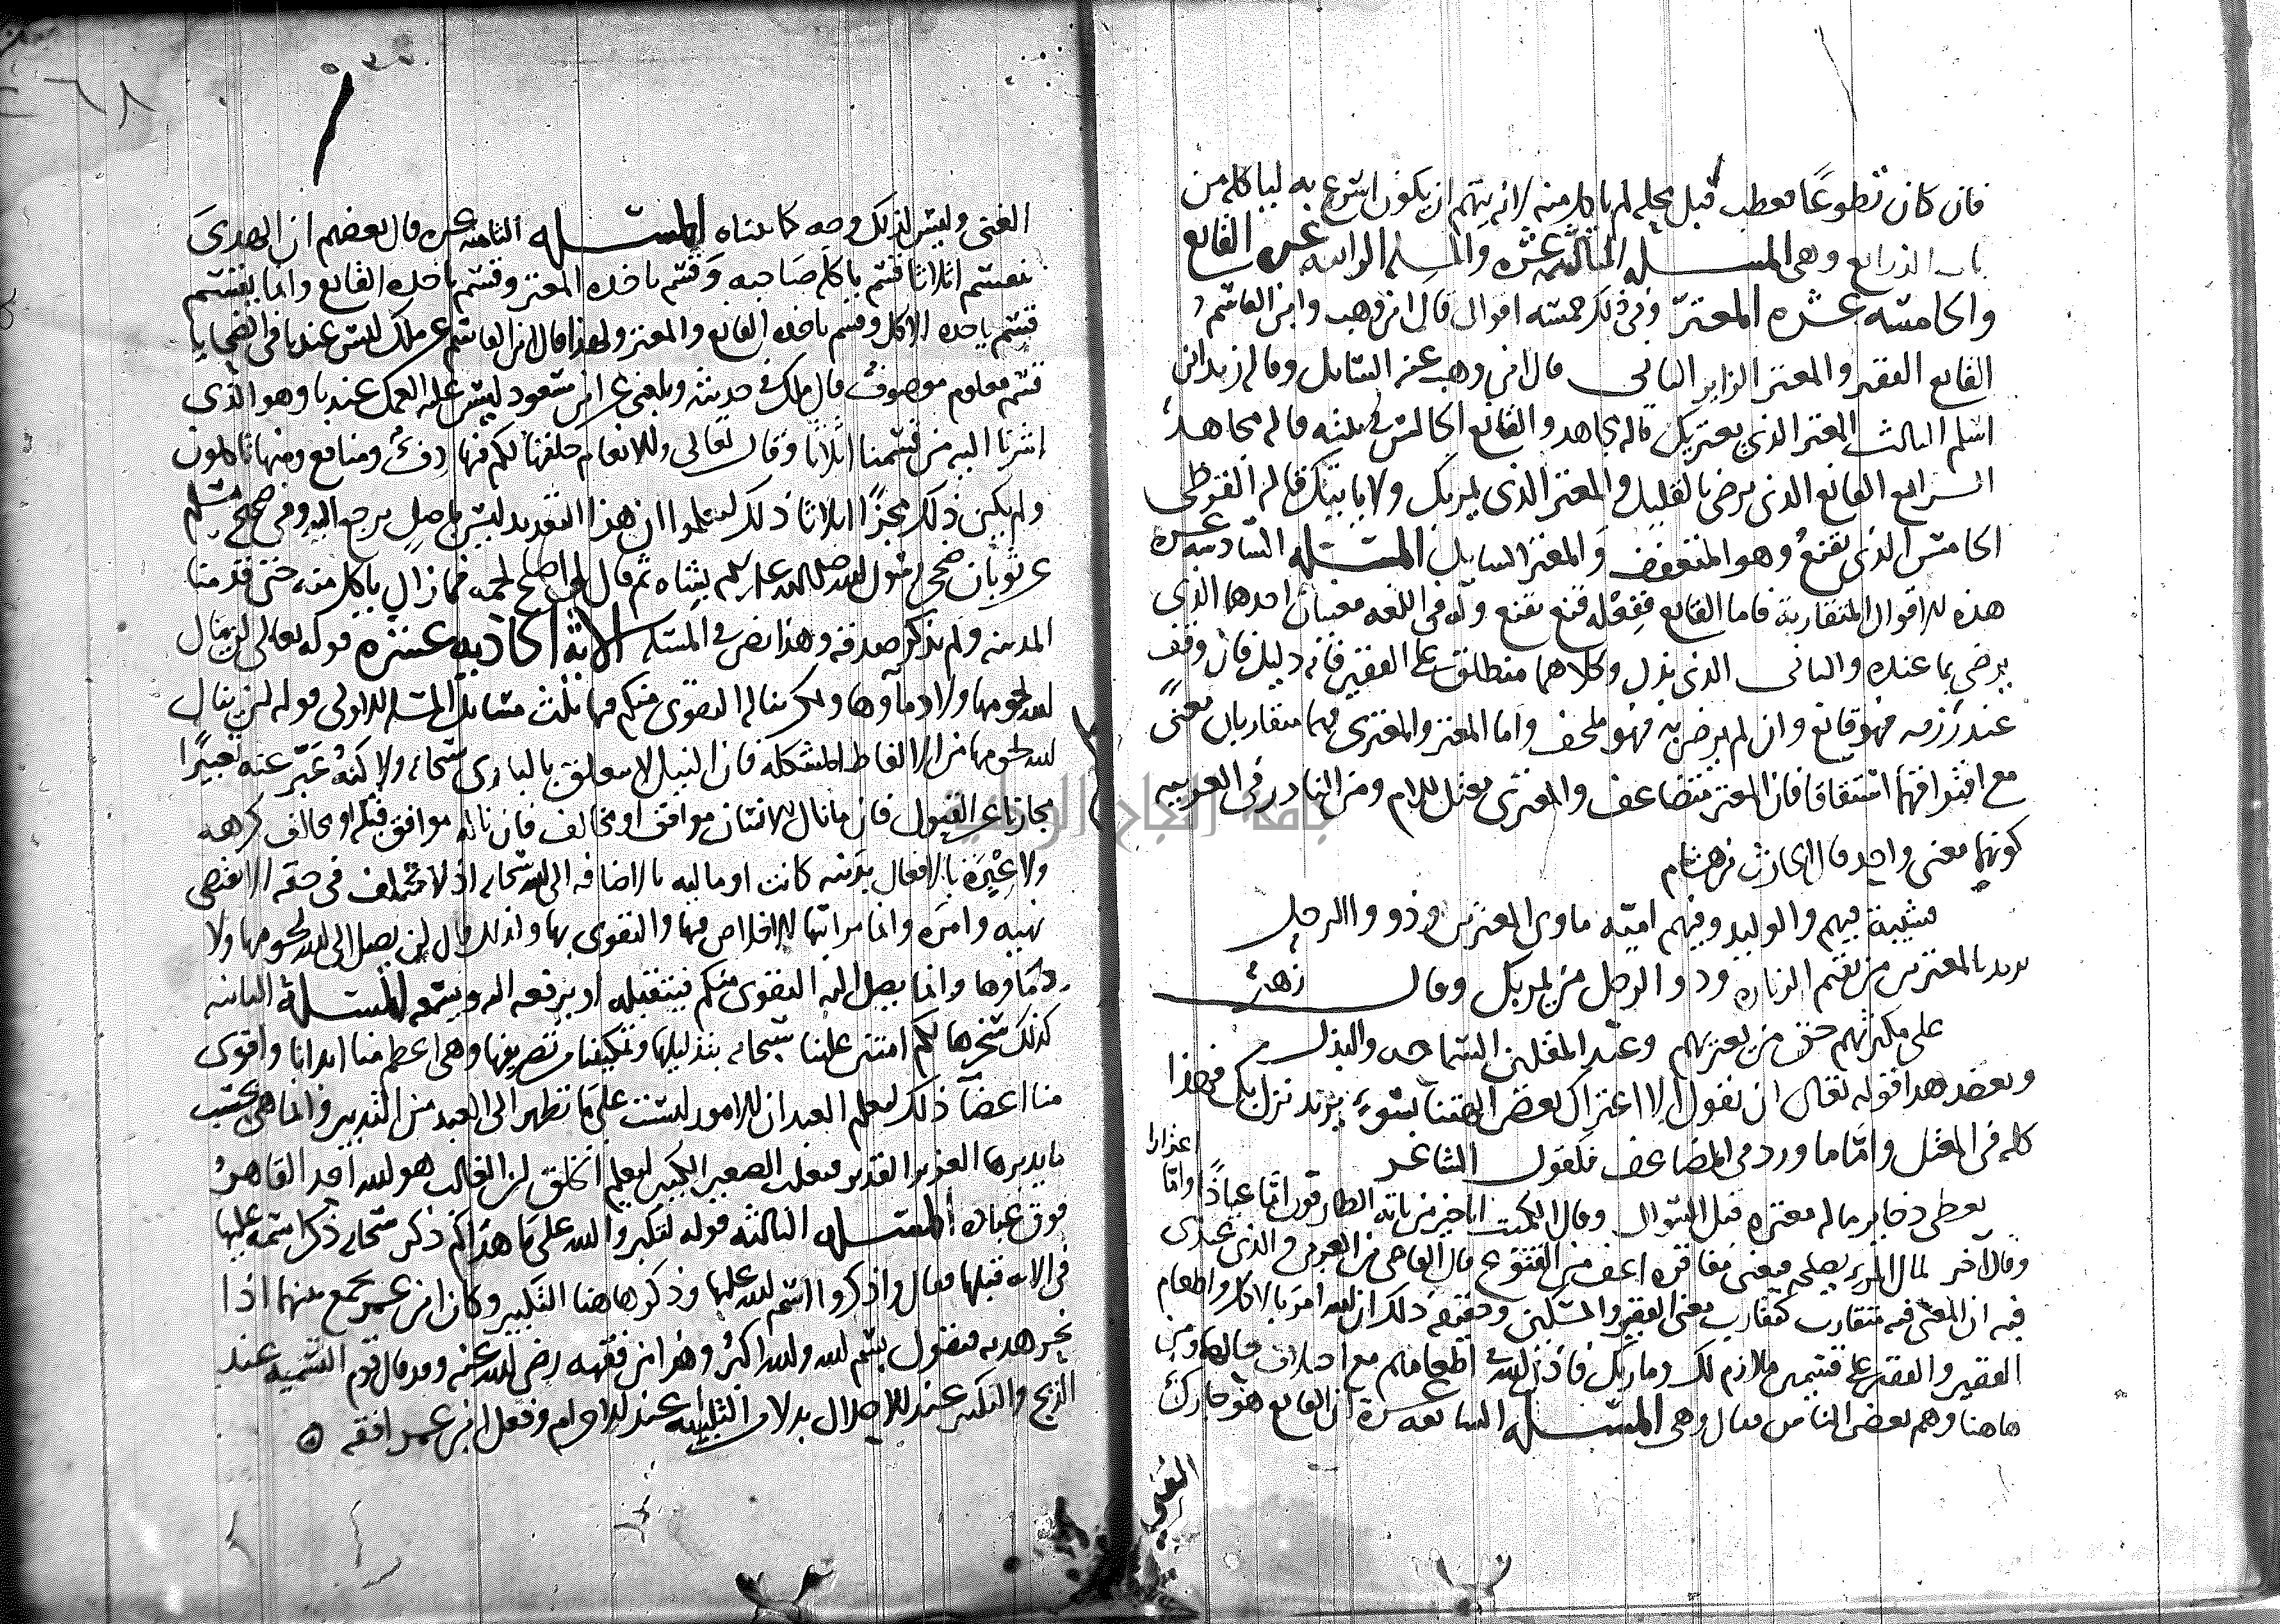 فان كان تطوعًا فعطب قبل محله لم ياكل منه لانه يتهم ان يكون اسرع به لياكله من
باب الذرايع وهى المسله الثالثه عشره والمسله الرابعه عشره القانع
والخامسه عشره المعترّ وفى ذلك خمسه اقوال قال ابن وهب وابن القاسم
القانع الفقير والمعتر الزاير الثانى قال ابن وهب عنه السايل وقاله زيد ابن
اسلم الثالث المعتر الذى يعتريك قاله مجاهد والقانع الجالس فى بيته قاله مجاهد
الرابع القانع الذى يرضى بالقليل والمعتر الذى يمر بك ولا يبايتك قاله القرظى
الخامس الذى يقنع وهو المتعفف والمعتر السايل المسله السادسه عشره
هذه الاقوال متقاربة فاما القانع ففعله قنع يقنع وله فى اللغه معنيان احدهما الذى
يرضى بما عنده والثانى الذى يذل وكلاهما منطلق على الفقير فانه ذليل فان وقف
عند رزقه فهو قانع وان لم يرض به فهو ملحف واما المعتر والمعترى فهما متقاربان معنىً
مع افتراقهما اشتقاقا فان المعتر مضاعف والمعترى معتل اللام ومن النادر فى العربيه
كونهما بمعنى واحد قال الحارث بن هشام
وشيبة فيهم والوليد وفيهم اميّه ماوى المعترين وذو الرحل
يريد بالمعترين من يقيم للزياره وذو الرحل من يمر بك وقال زهير
على مكثريهم حق من يعتريهم وعند المقلين السماحه والبذل
ويعضد هذا قوله تعالى ان نقول الا اعتراك بعض الهتنا بسوء يريد نزل بك فهذا
كله فى المعتل وامّا ما ورد فى المضاعف فكقول الشاعر
يعطى ذخاير ماله معتره قبل السوال وقال الكميت ايا خير من ياته الطارقون اما عياذًا واما
اعترارا
وقال اخر لمال المرء يصلحه فيغنى مفاقره اعف من القنوع قال القاضى ابن العربى والذى عندى
فيه ان المعنى فيه متقارب كتقارب معنى الفقير والمسكين وحقيقه ذلك ان الله امر بالاكل واطعام
الفقير والفقير على قسمين ملازم لك ومار بك فاذن الله فى اطعامهم مع اختلاف حالهما ومن
هاهنا وهم بعض الناس فقال وهى المسله السابعه عشرة ان القانع هو جارك
الغنى
الغنى وليس لذلك وجه كما بيناه المسله الثامنه عشره قال بعضهم ان الهدىَ
يقسم اثلاثا قسم ياكله صاحبه وقسم ياخده المعتر وقسم ياخده القانع وانما يقسم
قسم ياخده الاكل وقسم ياخده القانع والمعتر ولهذا قال ابن القاسم عن ملك ليس عندنا فى الضحايا
قسم معلوم موصوف قال ملك فى حديثه وبلغنى عن ابن مسعود ليس عليه العمل عندنا وهو الذى
اشرنا اليه من قسمنا اثلاثا وقال تعالى والانعام خلقها لكم فيها دفء ومنافع ومنها تاكلون
ولم يكن ذلك مجزّا اثلاثا ذلك لتعلموا ان هذا التقدير ليس باصل يرجع اليه وفى صحيح مسلم
عن ثوبان ضحى رسول الله صلى الله عليه وسلم بشاه ثم قال لى اصلح لحمه فما زال ياكل منه حتى قدمنا
المدينه ولم يذكر صدقه وهذا نص فى المسله الاية الحاديه عشره قوله تعالى لن ينال
الله لحومها ولا دماوها ولكن يناله التقوى منكم فيها ثلث مسايل المسله الاولى قوله لن ينال
الله لحومها من الالفاظ المشكله فان النيل لا يتعلق بالبارى سبحانه ولا كنه عبّر عنه تعبيرًا
مجازيا عن القبول فان ما نال الانسان موافق او مخالف فان ناله موافق قبله او مخالف كرهه
ولا عبرة بالافعال بدنيه كانت او ماليه بالاضافه الى الله سبحانه اذ لا تختلف فى حقه الا بمقتضى
نهيه وامره وانما مراتبها الاخلاص فيها والتقوى بها ولذلك قال لن يصل الى الله لحومها ولا
دماوها وانما يصل اليه التقوى منكم فيتقبله او يرفعه اليه ويسمعه المسله الثانيه
كذلك سخرها لكم امتن علينا سبحانه بتذليلها وتمكيننا من تصريفها وهى اعظم منا ابدانا واقوى
منا اعضآ ذلك ليعلم العبد ان الامور ليست على ما تظهر الى العبد من التدبير وانما هى بحسب
ما يدبرها العزيز القدير فيغلب الصغير الكبير ليعلم الخلق ان الغالب هو الله احد القاهر
فوق عباده المسله الثالثه قوله لتكبروا الله على ما هداكم ذكر سبحانه ذكر اسمه عليها
فى الايه قبلها فقال واذكروا اسم الله عليها وذكر هاهنا التكبير وكان ابن عمر يجمع بينهما اذا
نحر هديه فيقول بسم الله والله اكبر وهذا من فقهه رضى الله عنه وقد قال قوم التسميه عند
الذبح والتكبير عند الاحلال بدلا من التلبيه عند الاحرام وفعل ابن عمر افقه ه